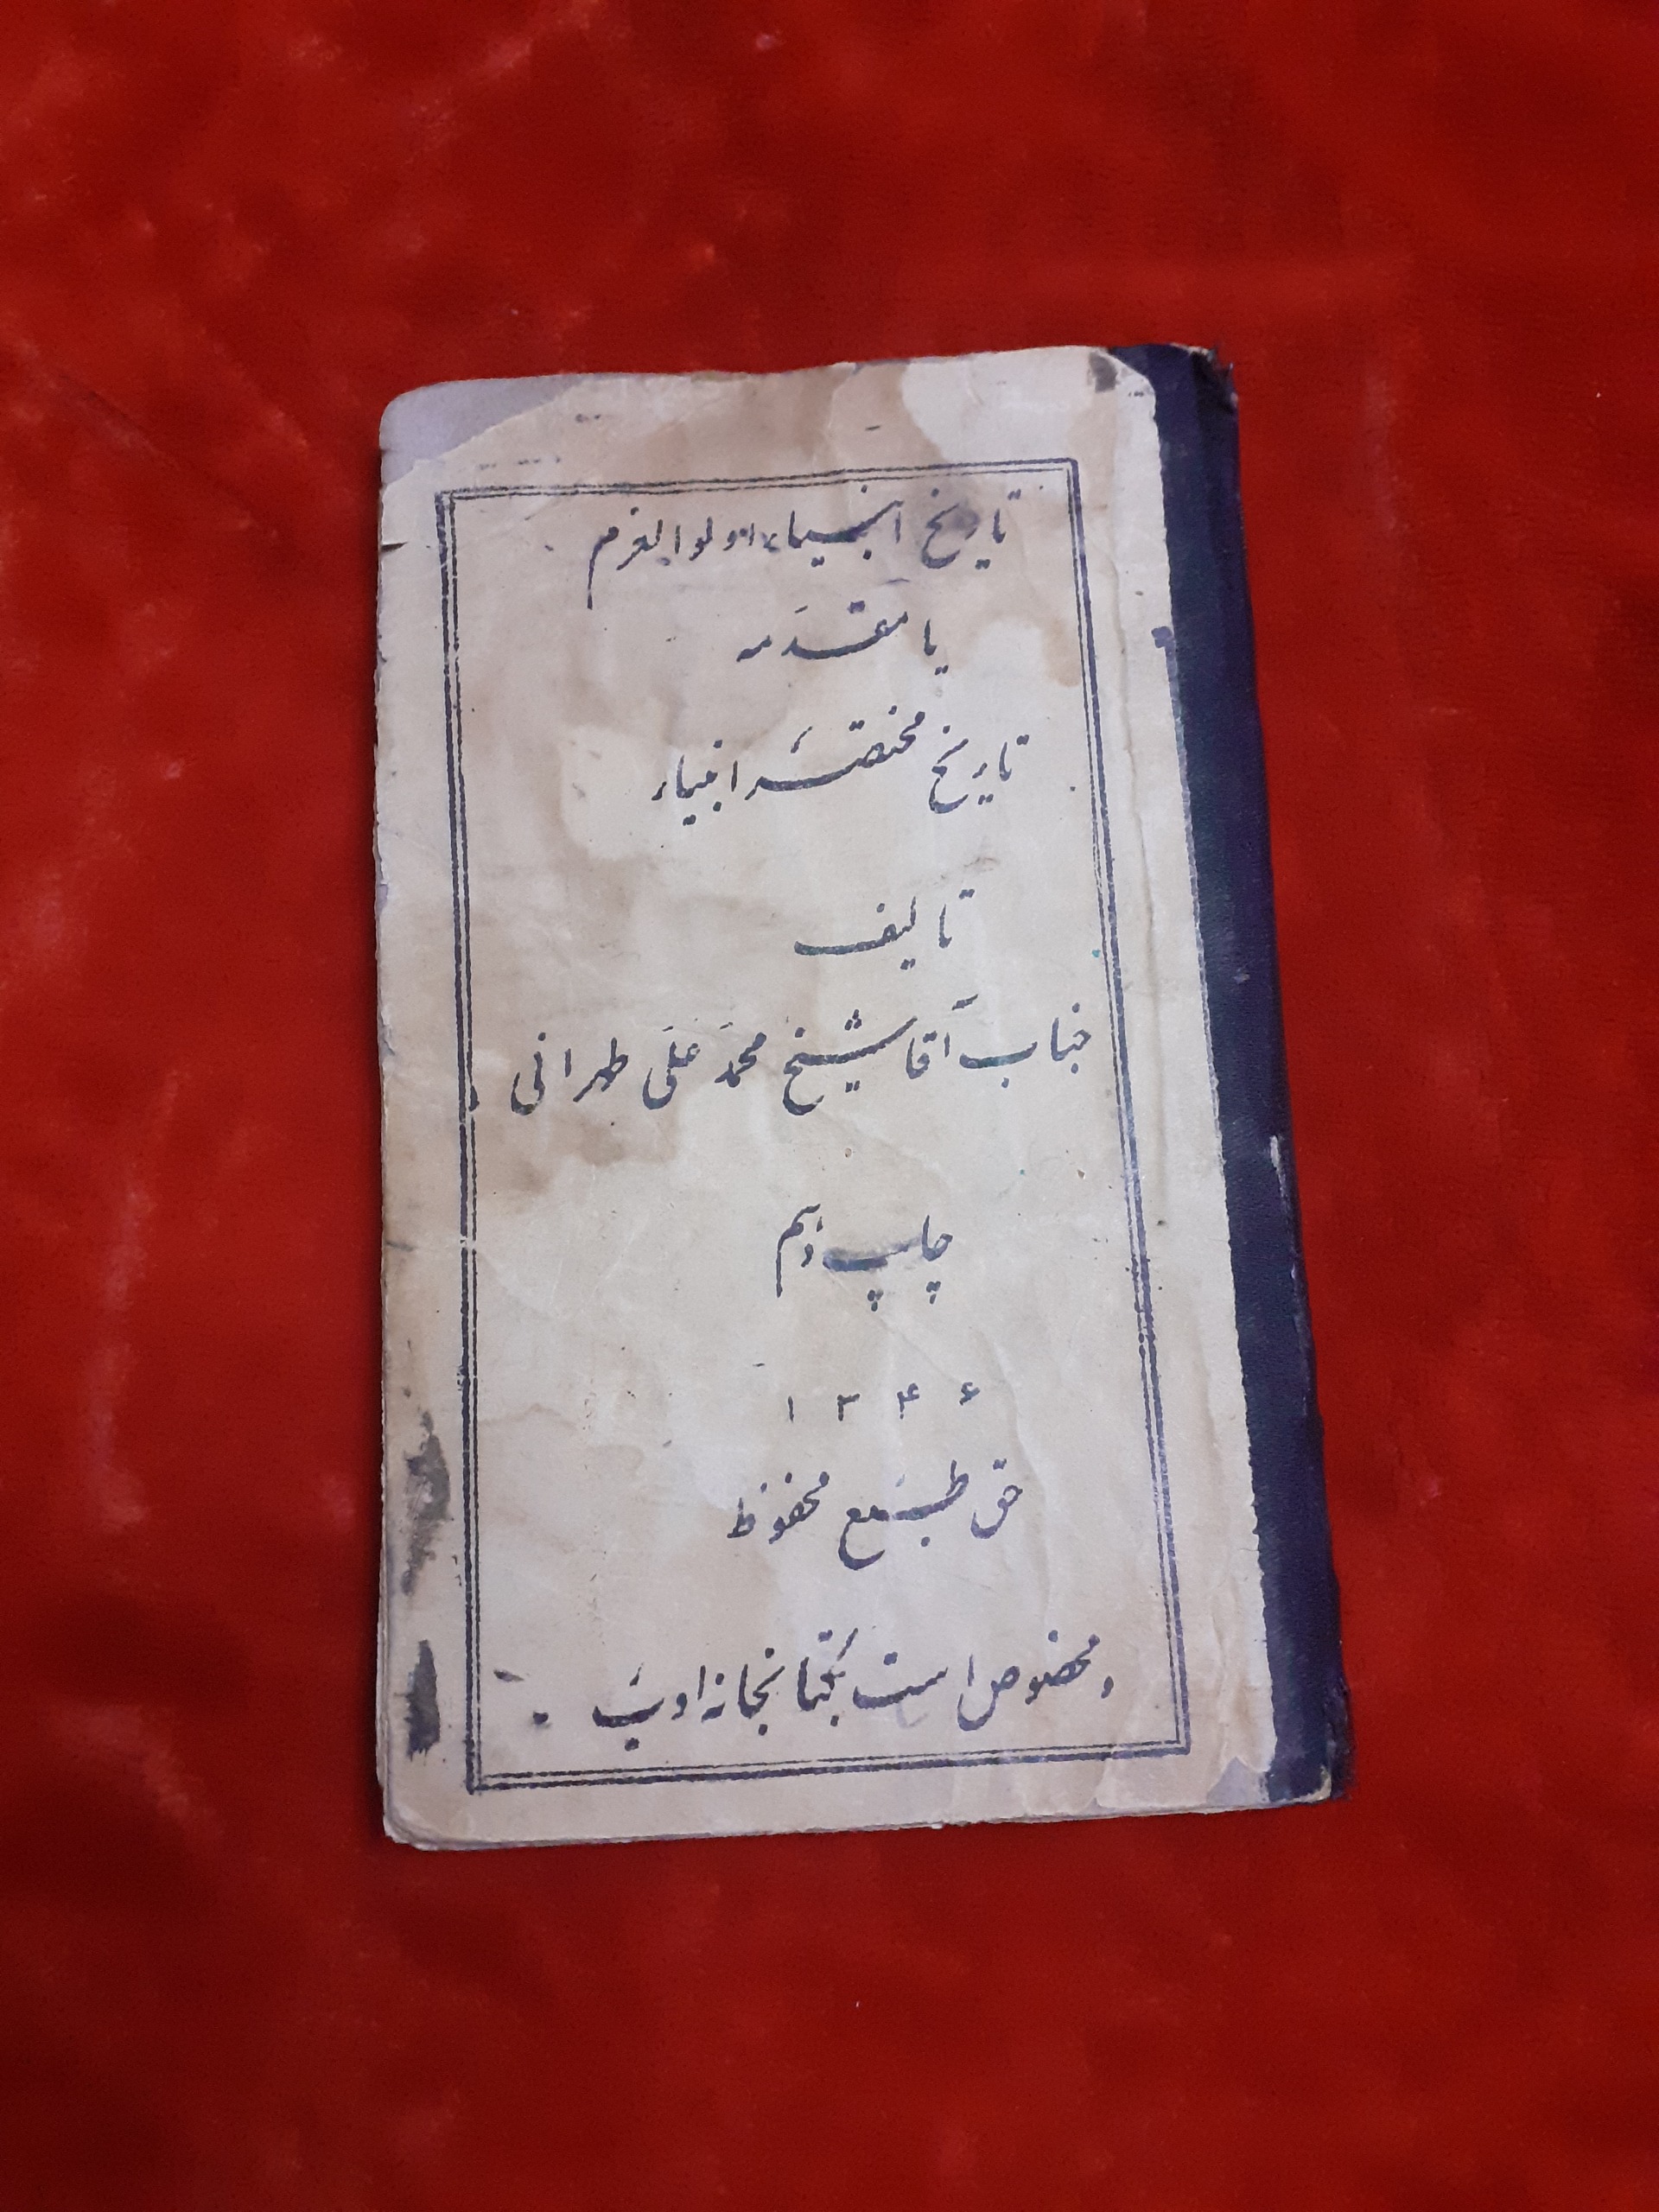 تاریخ انبیاء اولوالعزم
یا مقدمه
تاریخ مختصر انبیاء
تالیف
جناب آقا شیخ محمد علی طهرانی
چاپ دهم
۱۳۴۶
حق طبع محفوظ
و مخصوص است بکتابخانه ادبیه